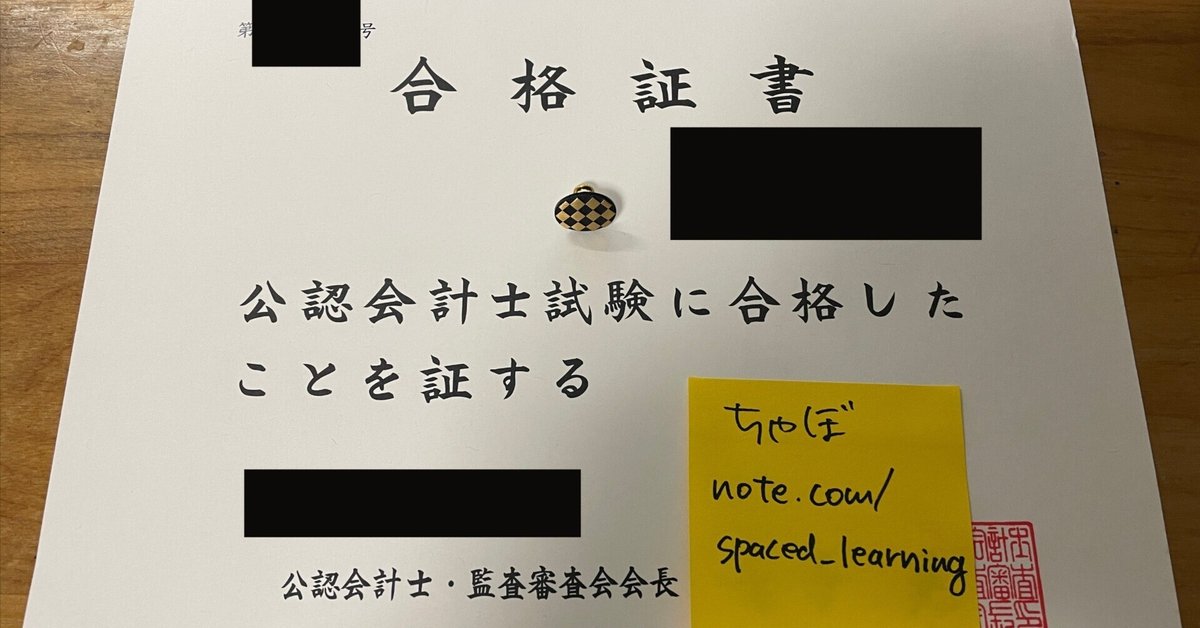 第 号
合格証書
公認会計士試験に合格した
ことを証する
公認会計士・監査審査会会長
ちゃぼ
note.com/
spaced_learning